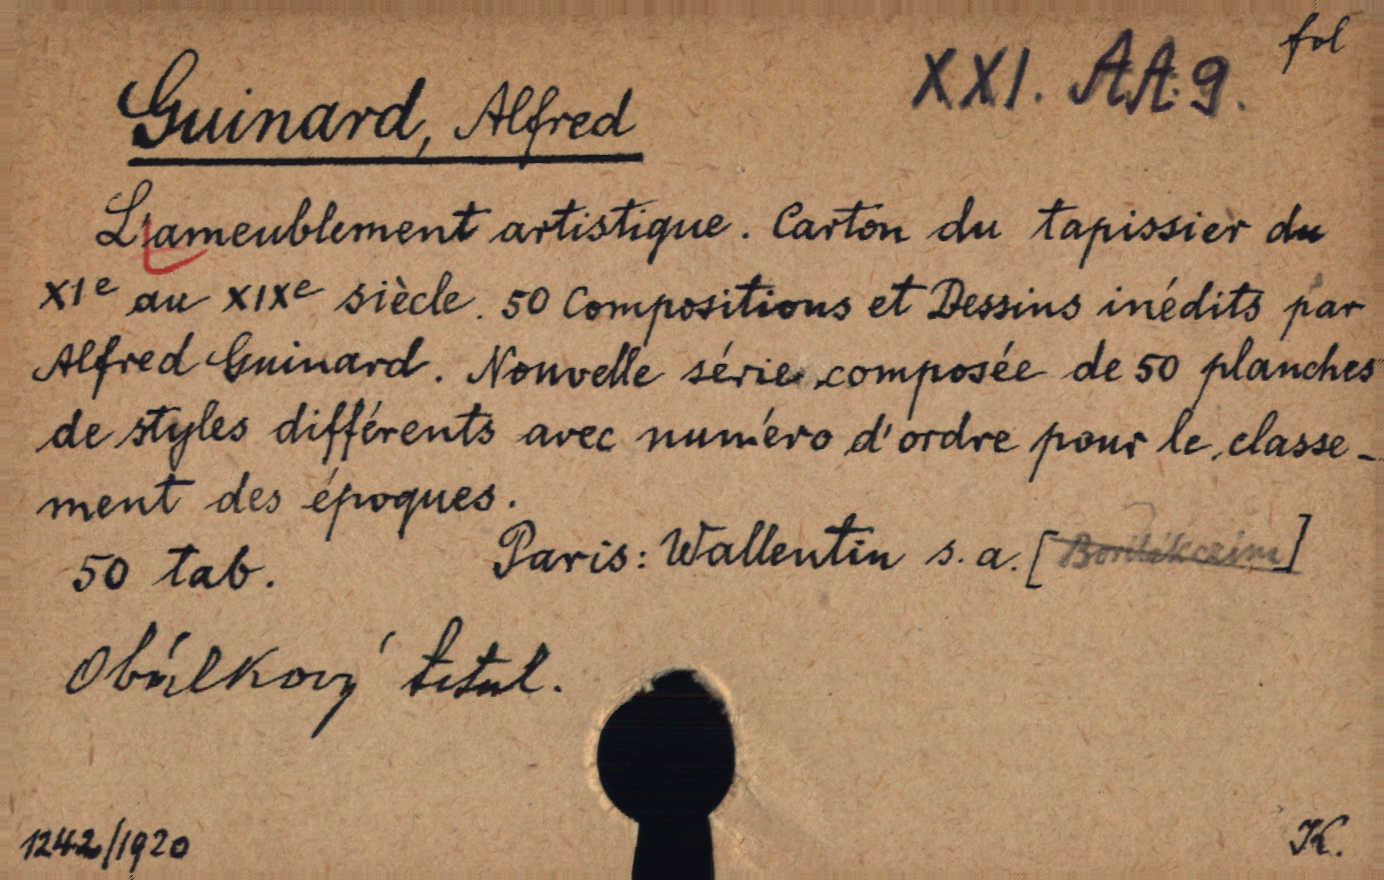 XXI. AA.9. fol
Guinard, Alfred
L'ameublement artistique. Carton du tapissier du
XIe au XIXe siècle. 50 Compositions et Dessins inédits par
Alfred Guinard. Nouvelle série composée de 50 planches
de styles différents avec numéro d'ordre pour le classe-
ment des époques.
50 tab. Paris: Wallentin s.a. [ ]
Obálkový titul.
1242/1920 K.